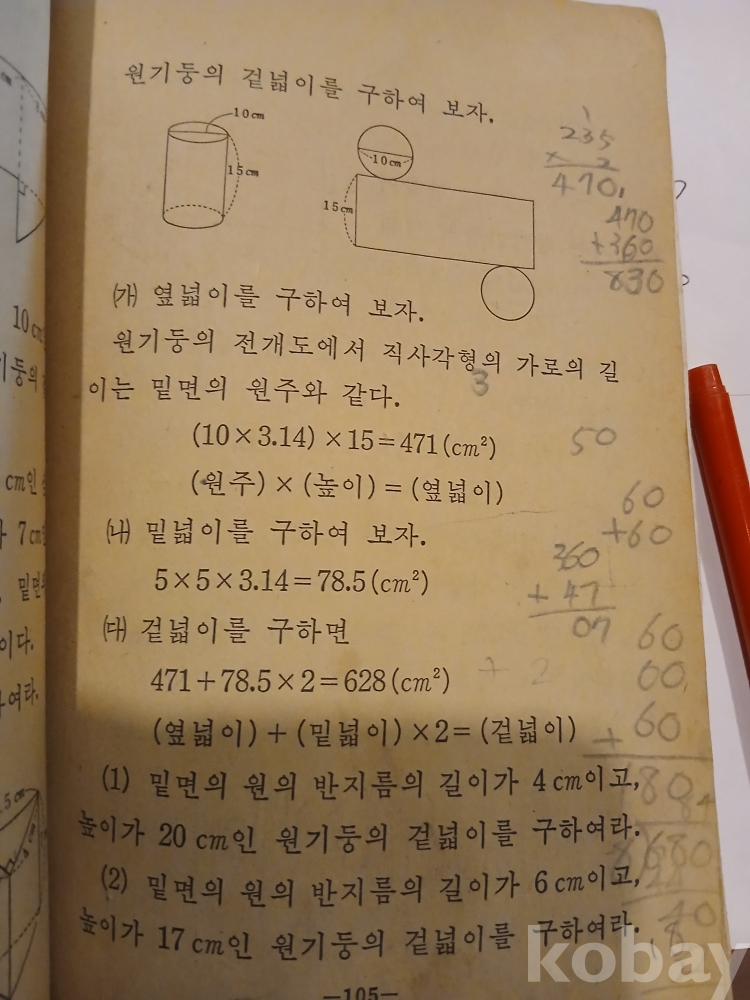 원기둥의 겉넓이를 구하여 보자.
10cm
15cm
10cm
15cm
1
235
× 2
470
470
+360
830
㈎ 옆넓이를 구하여 보자.
원기둥의 전개도에서 직사각형의 가로의 길
3
이는 밑면의 원주와 같다.
(10×3.14)×15=471(cm²)
50
(원주)×(높이)=(옆넓이)
60
+60
㈏ 밑넓이를 구하여 보자.
360
+47
07
5×5×3.14=78.5(cm²)
㈐ 겉넓이를 구하면
60
00
+60
471+78.5×2=628(cm²)
+2
(옆넓이)+(밑넓이)×2=(겉넓이)
(1) 밑면의 원의 반지름의 길이가 4cm이고,
높이가 20cm인 원기둥의 겉넓이를 구하여라.
(2) 밑면의 원의 반지름의 길이가 6cm이고,
높이가 17cm인 원기둥의 겉넓이를 구하여라.
—105—
10cm
기둥의
cm인
7cm
밑면
이다.
하여라.
.5cm
kobay